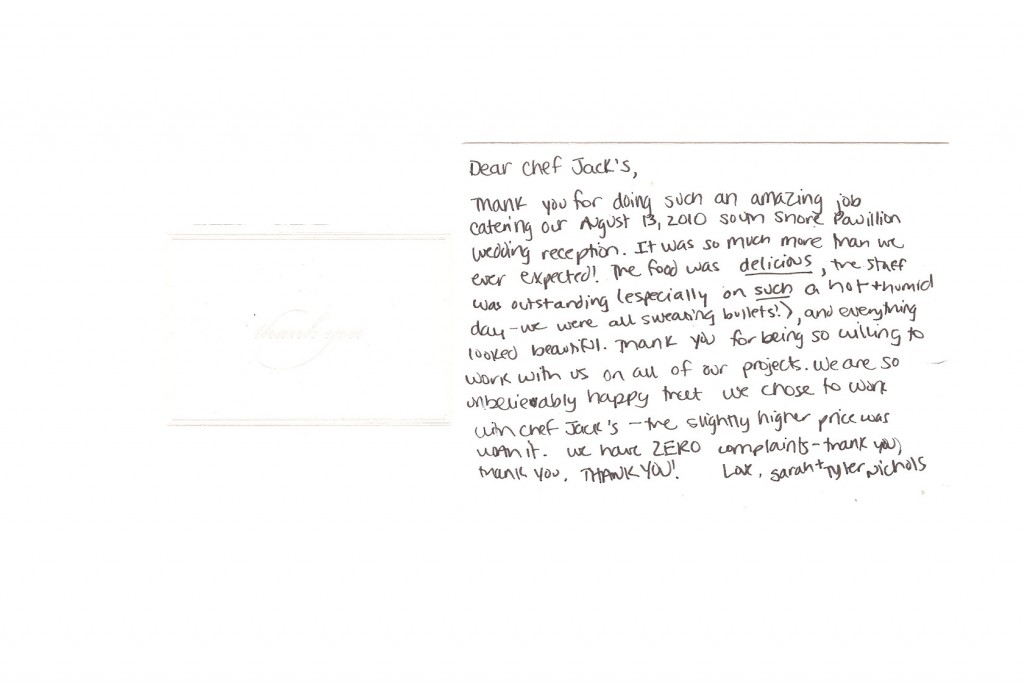 thank you
Dear Chef Jack's,
Thank you for doing such an amazing job
catering our August 13, 2010 South Shore Pavillion
wedding reception. It was so much more than we
ever expected! The food was delicious, the staff
was outstanding (especially on such a hot + humid
day - we were all sweating bullets!), and everything
looked beautiful. Thank you for being so willing to
work with us on all of our projects. We are so
unbelievably happy that we chose to work
with Chef Jack's - the slightly higher price was
worth it. We have ZERO complaints - thank you,
thank you, THANK YOU! Love, Sarah + Tyler Nichols